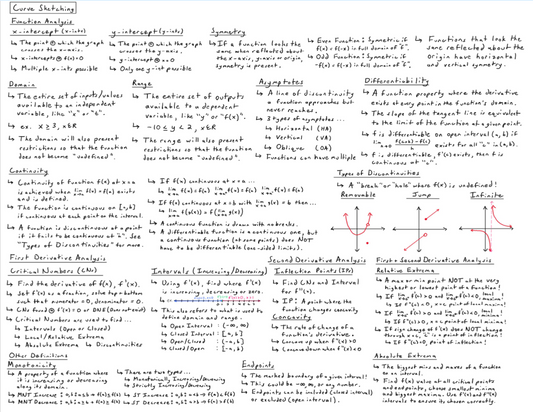 Curve Sketching
Function Analysis
x-intercept (x-ints)
↳ The point @ which the graph
crosses the x-axis.
↳ x-intercepts @ f(x)=0
↳ Multiple x-ints possible
y-intercept (y-ints)
↳ The point @ which the graph
crosses the y-axis.
↳ y-intercept @ x=0
↳ Only one y-int possible
Symmetry
↳ If a function looks the
same when reflected about
the x-axis, y-axis or origin,
symmetry is present.
↳ Even Function: Symmetric if
f(x)=f(-x) in full domain of "f".
↳ Odd Function: Symmetric if
-f(x)=f(-x) in full domain of "f".
↳ Functions that look the
same reflected about the
origin have horizontal
and vertical symmetry.
Domain
↳ The entire set of inputs/values
available to an independent
variable, like "x" or "t".
↳ ex. x≥3, x∈R
↳ The domain will also present
restrictions so that the function
does not become "undefined".
Range
↳ The entire set of outputs
available to a dependent
variable, like "y" or "f(x)".
↳ -10≤y<2, x∈R
↳ The range will also present
restrictions so that the function
does not become "undefined".
Asymptotes
↳ A line of discontinuity
a function approaches but
never reaches.
↳ 3 types of asymptotes...
↳ Horizontal (HA)
↳ Vertical (VA)
↳ Oblique (OA)
↳ Functions can have multiple
Differentiability
↳ A function property where the derivative
exists at every point in the function's domain.
↳ The slope of the tangent line is equivalent
to the limit of the function at a given point.
↳ f is differentiable on open interval (a,b) if
exists for all "c" in (a,b).
↳ f is differentiable, f'(c) exists, then f is
continuous at "c".
Continuity
↳ Continuity of function f(x) at x=a
is achieved when lim f(x)=f(a) exists
and is defined.
↳ The function is continuous on [a,b]
if continuous at each point on the interval.
↳ A function is discontinuous at a point
if it fails to be continuous at "a". See
"Types of Discontinuities" for more.
↳ If f(x) continuous at x=a...
↳ If f(x) continuous at x=b with lim g(x)=b then...
↳ A continuous function is drawn with no breaks.
↳ A differentiable function is a continuous one, but
a continuous function (at some points) does NOT
have to be differentiable (one-sided limits).
Types of Discontinuities
↳ A "break" or "hole" where f(x) is undefined!
Removable
Jump
Infinite
First Derivative Analysis
Critical Numbers (CNs)
↳ Find the derivative of f(x), f'(x).
↳ Set f'(x) as a function, solve top + bottom
such that numerator = 0, denominator = 0.
↳ CNs found @ f'(x)=0 or DNE
↳ Critical Numbers are used to find...
↳ Intervals (Open or Closed)
↳ Local/Relative Extrema
↳ Absolute Extrema ↳ Discontinuities
Intervals (Increasing/Decreasing)
↳ Using f'(x), find where f'(x)
is increasing, decreasing or zero.
↳ This also relates to what is used to
define domain and range.
↳ Open Interval: (-∞, ∞)
↳ Closed Interval: [a, b]
↳ Open/Closed: (-a, b]
↳ Closed/Open: [-a, b)
Second Derivative Analysis
Inflection Points (IPs)
↳ Find CNs and Interval
for f''(x).
↳ IP: A point where the
function changes concavity.
Concavity
↳ The rate of change of a
function's derivative.
↳ Concave up when f''(x)>0
↳ Concave down when f''(x)<0
First + Second Derivative Analysis
Relative Extrema
↳ A max or min point NOT at the very
highest or lowest point of a function!
↳ If f''(x)>0, x=c point of local minimum!
↳ If sign change of f'(x) does NOT change
through x=a, "a" is a point of inflection!
↳ If f''(x)=0, point of inflection!
Other Definitions
Monotonicity
↳ A property of a function where
it is increasing or decreasing
along its domain.
↳ There are two types...
↳ Monotonically Increasing/Decreasing
↳ Strictly Increasing/Decreasing
Endpoints
↳ The marked boundary of a given interval!
↳ This could be -∞, ∞, or any number.
↳ Endpoints can be included (closed interval)
or excluded (open interval).
Absolute Extrema
↳ The biggest mins and maxes of a function
on an interval.
↳ Find f(x) value at all critical points
and endpoints, choose smallest minima
and biggest maxima. Use f'(x) and f''(x)
intervals to ensure its chosen correctly.